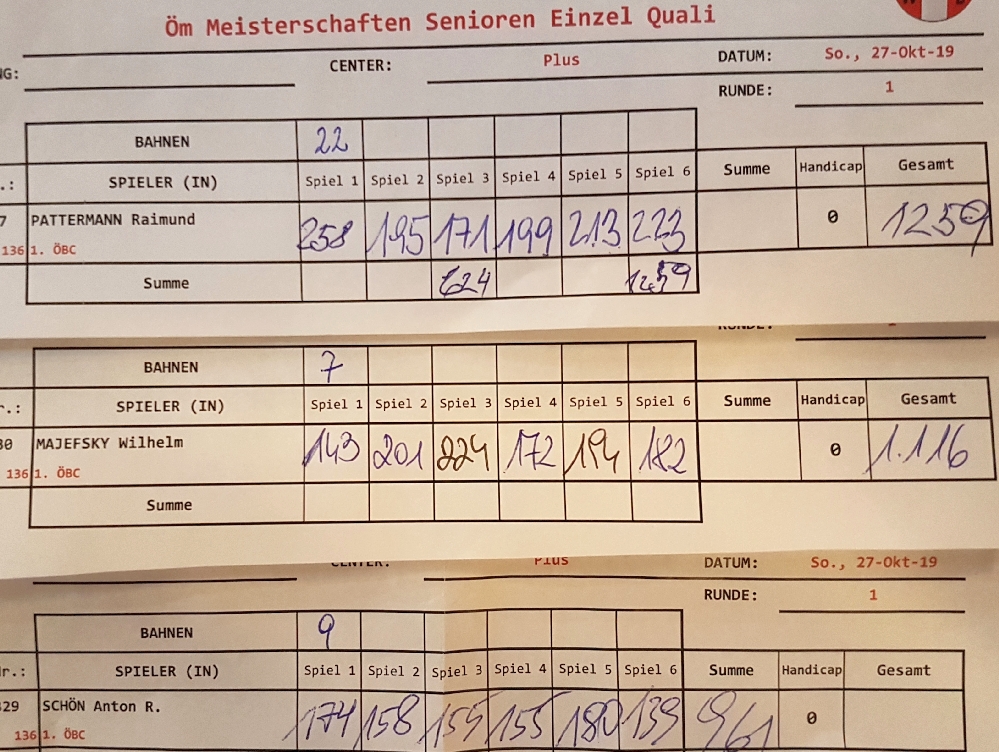 Öm Meisterschaften Senioren Einzel Quali
NG: CENTER: Plus DATUM: So., 27-Okt-19
RUNDE: 1
BAHNEN 22
.: SPIELER (IN) Spiel 1 Spiel 2 Spiel 3 Spiel 4 Spiel 5 Spiel 6 Summe Handicap Gesamt
7 PATTERMANN Raimund 258 195 171 199 213 223 0 1259
136 1. ÖBC
Summe 624 1259
RUNDE:
BAHNEN 7
r.: SPIELER (IN) Spiel 1 Spiel 2 Spiel 3 Spiel 4 Spiel 5 Spiel 6 Summe Handicap Gesamt
30 MAJEFSKY Wilhelm 143 201 224 172 194 182 0 1.116
136 1. ÖBC
Summe
CENTER: Plus DATUM: So., 27-Okt-19
RUNDE: 1
BAHNEN 9
r.: SPIELER (IN) Spiel 1 Spiel 2 Spiel 3 Spiel 4 Spiel 5 Spiel 6 Summe Handicap Gesamt
29 SCHÖN Anton R. 174 158 155 155 180 139 961 0
136 1. ÖBC